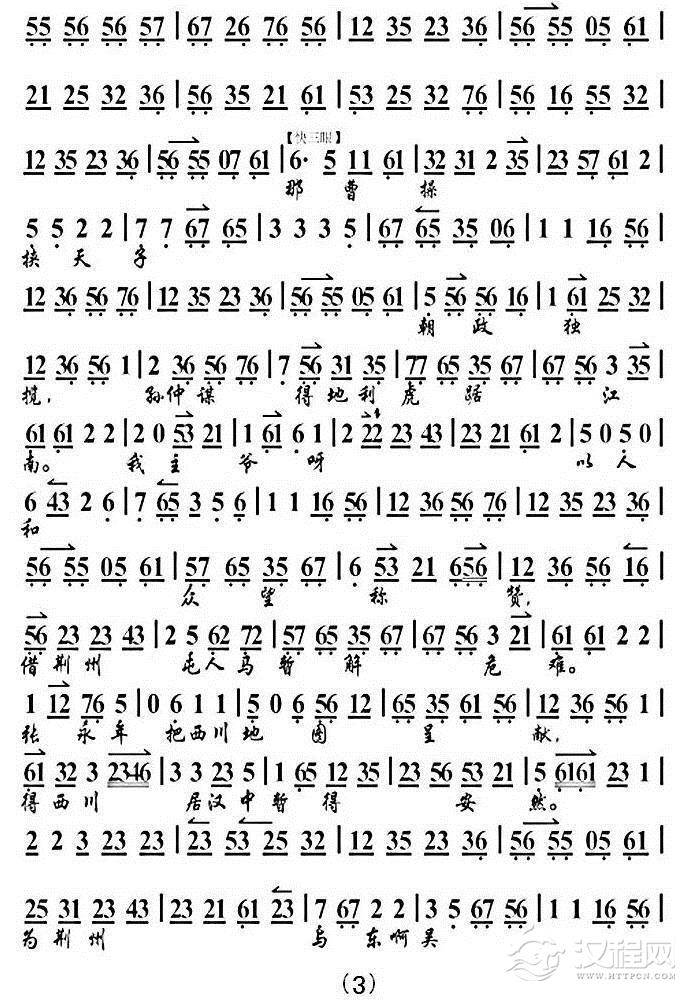 55 56 56 57 | 67 26 76 56 | 12 35 23 36 | 56 55 05 61 |
21 25 32 36 | 56 35 21 61 | 53 25 32 76 | 56 16 55 32 |
【快三眼】
12 35 23 36 | 56 55 07 61 | 6· 5 11 61 | 32 31 2 35 | 23 57 61 2 |
那曹操
5 5 2 2 | 7 7 67 65 | 3 3 3 5 | 67 65 35 06 | 1 1 16 56 |
挟天子
12 36 56 76 | 12 35 23 36 | 56 55 05 61 | 5 56 56 16 | 1 61 25 32 |
朝政独
12 36 56 1 | 2 36 56 76 | 7 56 31 35 | 77 65 35 67 | 67 56 3 35 |
揽,孙仲谋得地利虎踞江
61 61 2 2 | 2 0 53 21 | 1 61 6 1 | 2 22 23 43 | 23 21 61 2 | 5 0 5 0 |
南。我主爷呀以人
6 43 2 6 | 7 65 3 5 6 | 1 1 16 56 | 12 36 56 76 | 12 35 23 36 |
和
56 55 05 61 | 57 65 35 67 | 6 53 21 656 | 12 36 56 16 |
众望称赞,
56 23 23 43 | 2 5 62 72 | 57 65 35 67 | 67 56 3 21 | 61 61 2 2 |
借荆州屯人马暂解危难。
1 12 76 5 | 0 6 1 1 | 5 0 6 56 12 | 65 35 61 56 | 12 36 56 1 |
张永年把西川地图呈献,
61 32 3 2346 | 3 3 23 5 | 1 65 12 35 | 23 56 53 21 | 5 6161 23 1 |
得西川居汉中暂得安然。
2 2 23 23 | 23 53 25 32 | 12 35 23 36 | 56 55 05 61 |
25 31 23 43 | 23 21 61 23 | 7 67 2 2 | 3 5 67 56 | 1 1 16 56 |
为荆州与东啊吴
(3)
汉程网
WWW.HTTPCN.COM